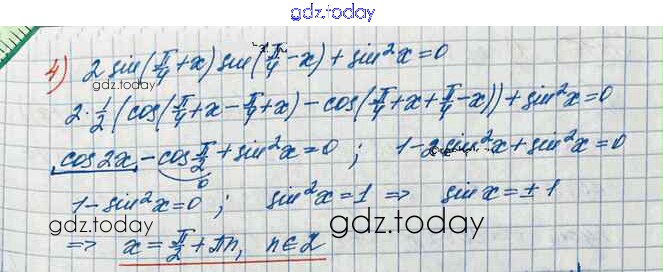 gdz.today
4) 2 sin(π/4 + x) sin(π/4 − x) + sin²x = 0
gdz.today
2 · 1/2 (cos(π/4 + x − π/4 + x) − cos(π/4 + x + π/4 − x)) + sin²x = 0
cos 2x − cos π/2 + sin²x = 0 ; 1 − 2 sin²x + sin²x = 0
0
1 − sin²x = 0 ; sin²x = 1 ⇒ sin x = ± 1
gdz.today
gdz.today
⇒ x = π/2 + πn, n ∈ Z